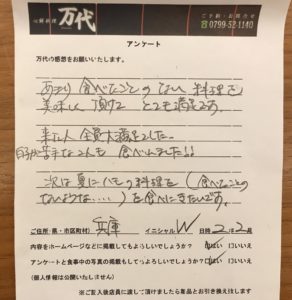 万代
ご予約・お問合せ
0799-52-1140
アンケート
万代の感想をお願いいたします。
あまり食べたことのない料理を
美味しく頂けて とても満足です。
来た人 全員大満足でした。
苦手な人も 食べれました!!
次は夏にハモの料理を(食べたことの
ないような……)を食べにきたいです。
ご住所(県・市区町村) 兵庫 イニシャル W 日時 2/2
内容をホームページなどに掲載してもよろしいでしょうか? □はい □いいえ
アンケートと食事中の写真の掲載もしてもよろしいでしょうか? □はい □いいえ
(個人情報は公開いたしません)
※ご記入後店員に渡して頂けましたら粗品とお引き換え致します